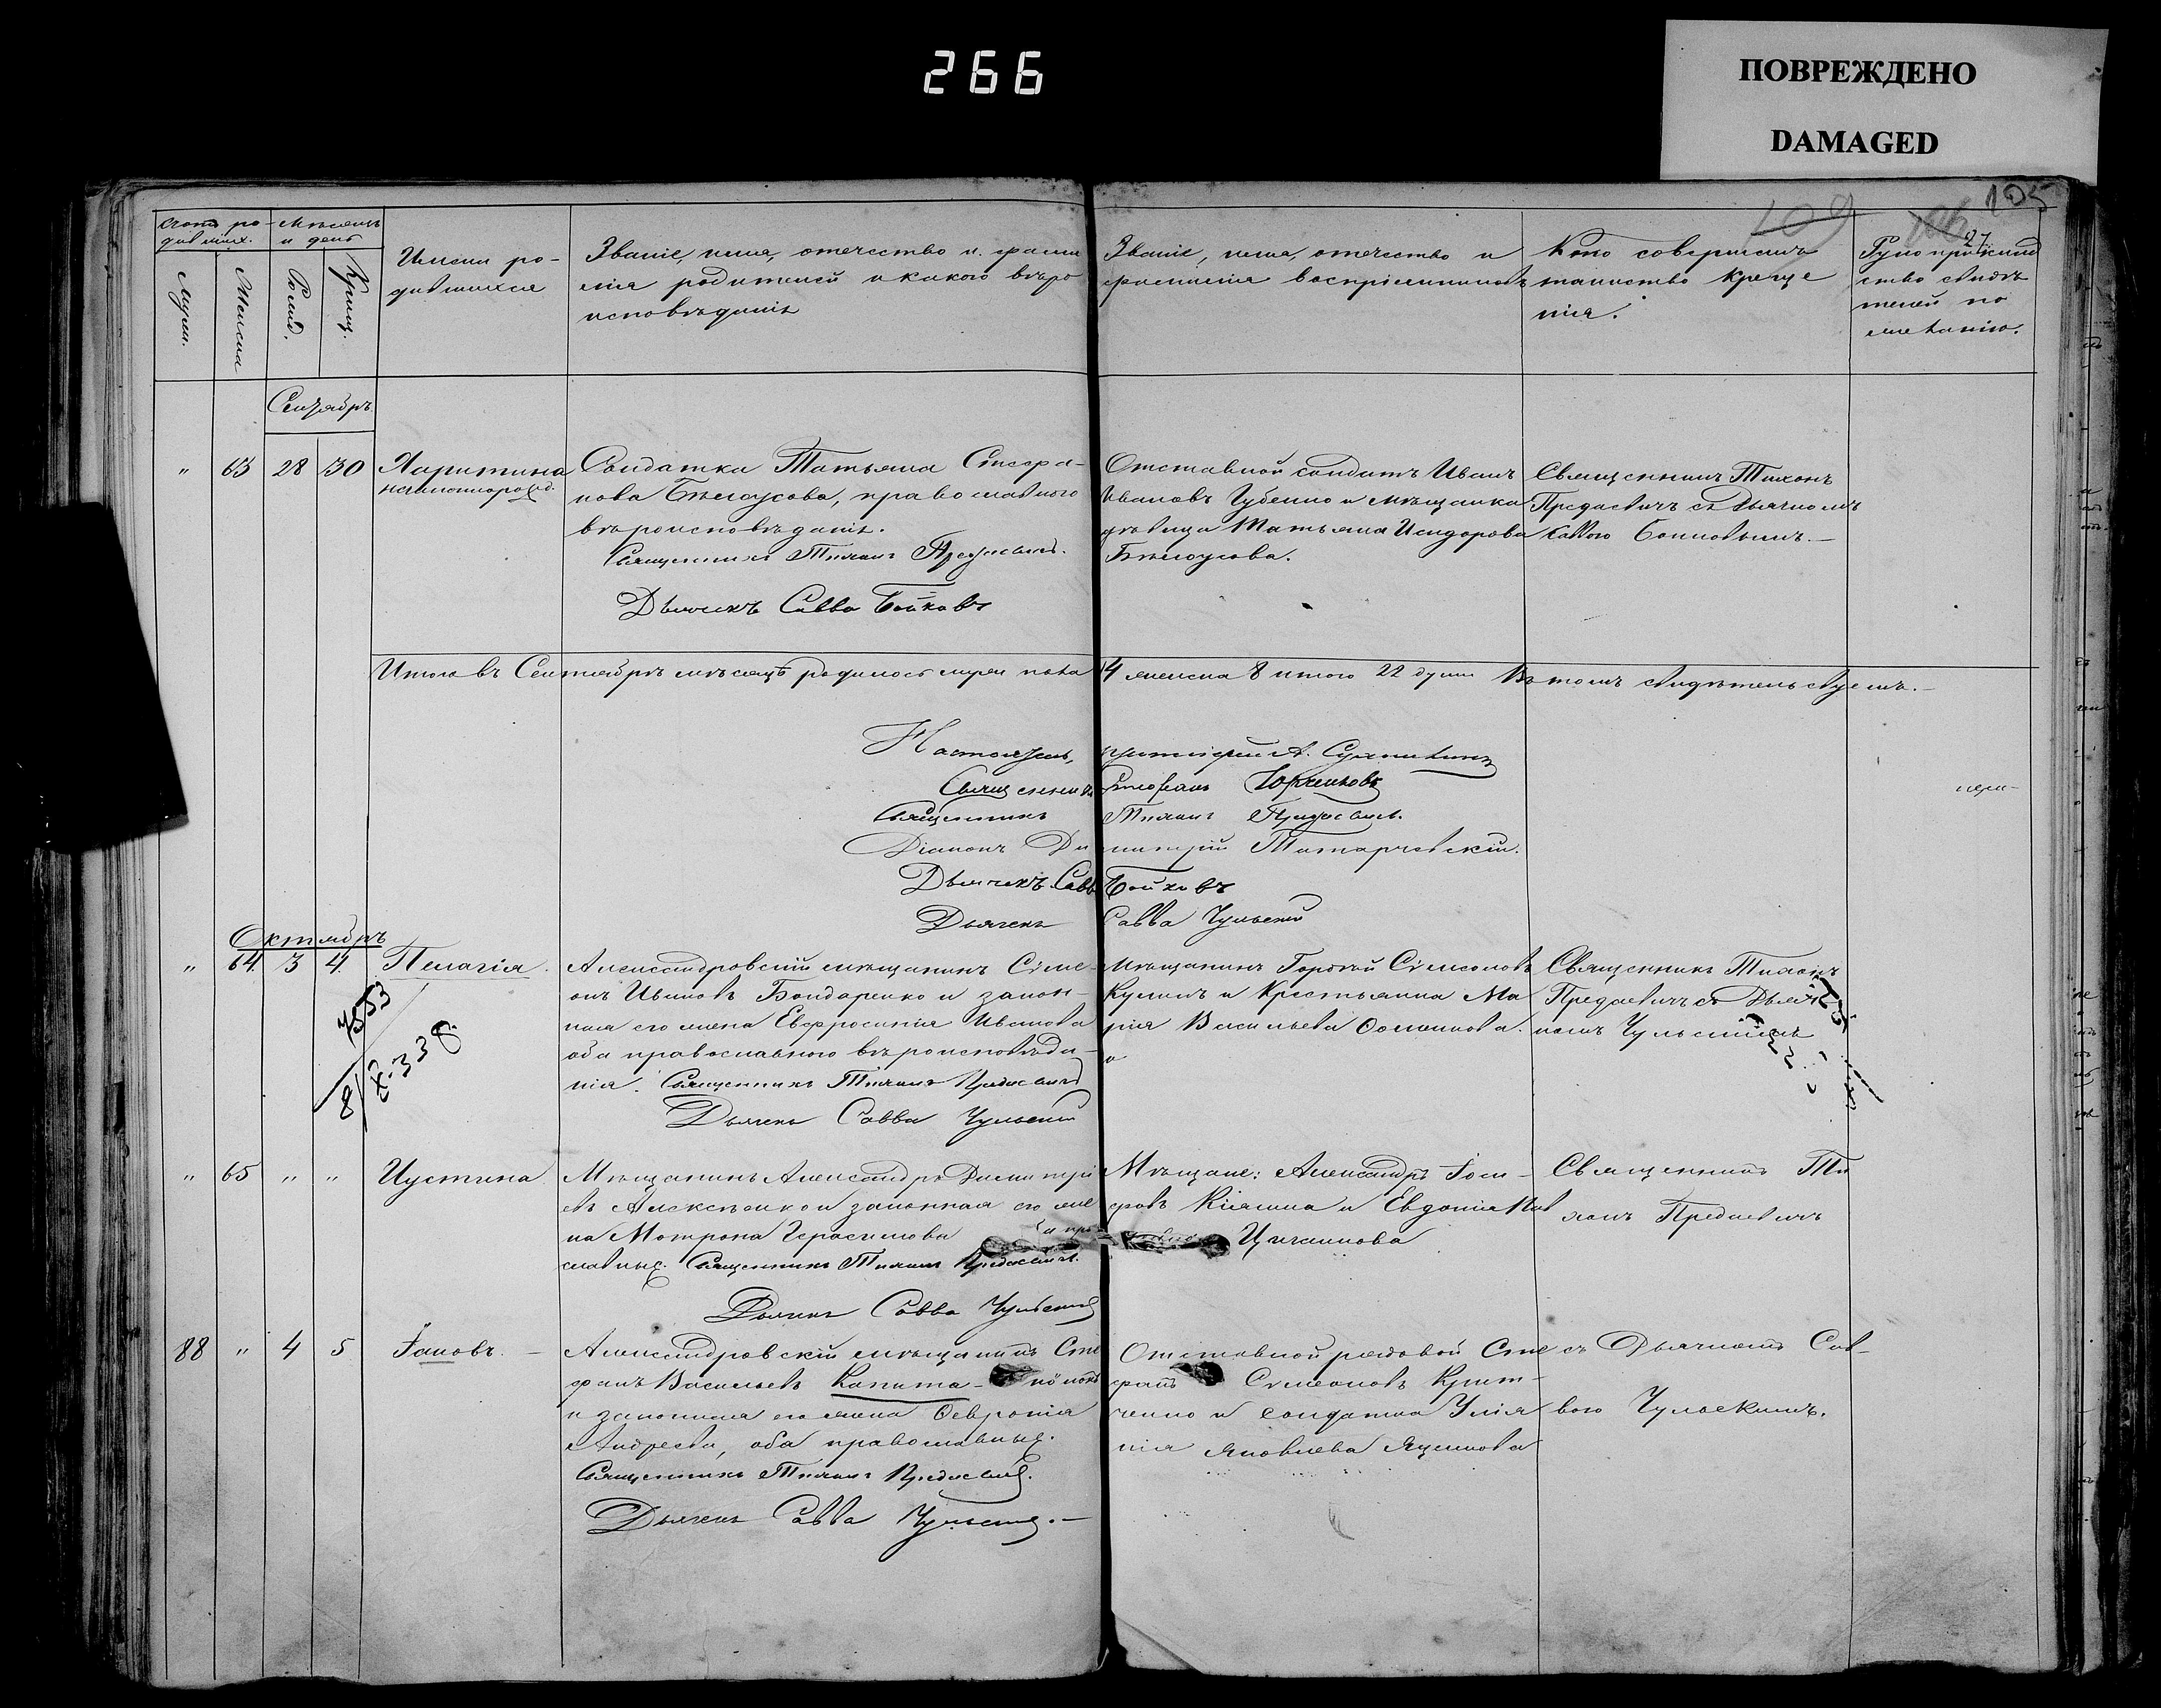 266
ПОВРЕЖДЕНО
DAMAGED
105
109
27
Счетъ ро-
дившихъ.
Мѣсяцъ
и день
Мужи.
Женска
Рожд.
Крещ.
Имена ро-
дившихся
Званіе, имя, отчество и фами
лія родителей и какого вѣро
исповѣданія
Званіе, имя, отчество и
фамилія воспріемниковъ
Кто совершилъ
таинство креще
нія.
Рукоприклад
ство свидѣ
телей по
желанію.
Сентябрь
" 63 28 30
Харитина
незаконнорожд.
Солдатка Татьяна Стефа-
нова Бѣлоусова, православного
вѣроисповѣданія.
Священникъ Тихонъ Предаевичъ.
Дьячекъ Савва Бойковъ
Отставной солдатъ Иванъ
Ивановъ Губенко и мѣщанка
дѣвица Татьяна Исидорова
Бѣлоусова.
Священникъ Тихонъ
Предаевичъ съ Дьячкомъ
Саввою Бойковымъ.—
Итого въ Сентябрѣ мѣсяцѣ родилось муж пола 14 женска 8 итого 22 души Въ томъ свидѣтельствуемъ.—
Настоятель, протоіерей А.
Священникъ Стефанъ
Священникъ Тихонъ Предаевичъ.
Діаконъ Димитрій Татарчевскій.
Дьячекъ Савва Бойковъ
Дьячекъ Савва Чульскій
Октябрь
" 64 3 4
Пелагія.
Александровскій мѣщанинъ Симе-
онъ Ивановъ Бондаренко и закон-
ная его жена Евфросинія Иванова
оба православного вѣроисповѣда-
нія. Священникъ Тихонъ Предаевичъ
Дьячекъ Савва Чульскій
Мѣщанинъ Гордѣй Симеоновъ
и Крестьянка Ма
рія Васильева
Священникъ Тихонъ
Предаевичъ съ Дьяч
комъ Чульскимъ
" 65 " "
Иустина
Мѣщанинъ Александръ Димитрі
евъ Алексѣенко и законная его же
на Мотрона Герасимова
славные. Священникъ Тихонъ Предаевичъ.
Дьячекъ Савва Чульскій
Мѣщане: Александръ Іоси-
фовъ Кіяшка и Евдокія
Цыганкова
Священникъ Ти
хонъ Предаевичъ
88 " 4 5
Іаковъ. —
Александровскій мѣщанинъ Сте
фанъ Васильевъ Капита-
и законная его жена Февронія
Андреева, оба православные.
Священникъ Тихонъ Предаевичъ.
Дьячекъ Савва Чульскій.—
Отставной рядовой Сте
фанъ Симеоновъ
и солдатка Уліа
нія Яковлева Яценкова
съ Дьячкомъ Сав-
вою Чульскимъ.